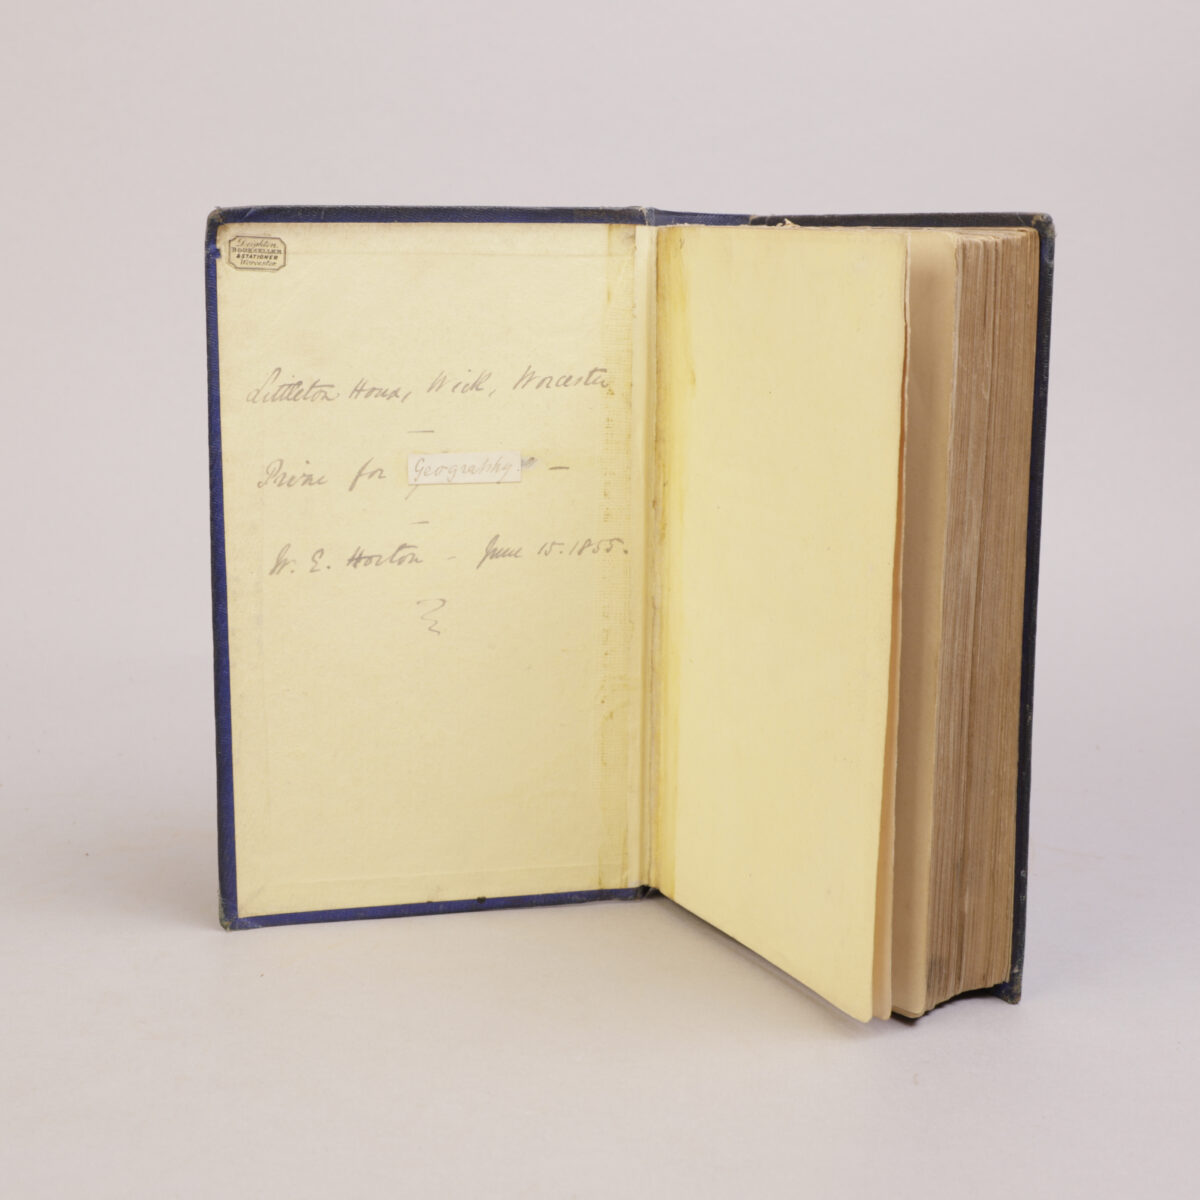 Deighton
BOOKSELLER
& STATIONER
Worcester
Littleton House, Wick, Worcester
Prize for Geography. –
W. E. Horton – June 15. 1855.